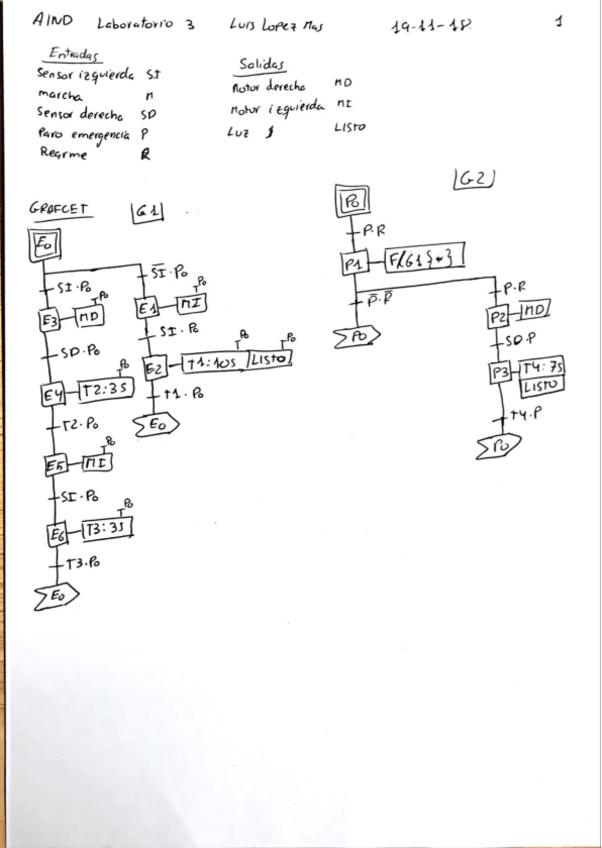 AIND Laboratorio 3 Luis Lopez Mas 19-11-18 1
Entradas
Sensor izquierda SI
marcha M
Sensor derecha SD
Paro emergencia P
Rearme R
Salidas
Motor derecha MD
Motor izquierda MI
Luz LISTO
GRAFCET G1
E0
SI·P0
S̅I̅·P0
E3 MD P0
E1 MI P0
SD·P0
SI·P0
E4 T2:3s P0
E2 T1:10s P0 LISTO P0
T2·P0
T1·P0
E0
E5 MI P0
SI·P0
E6 T3:3s P0
T3·P0
E0
G2
P0
P·R
P1 F/G1{*}
P̅·R̅
P·R
P0
P2 MD
SD·P
P3 T4:7s
LISTO
T4·P
P0